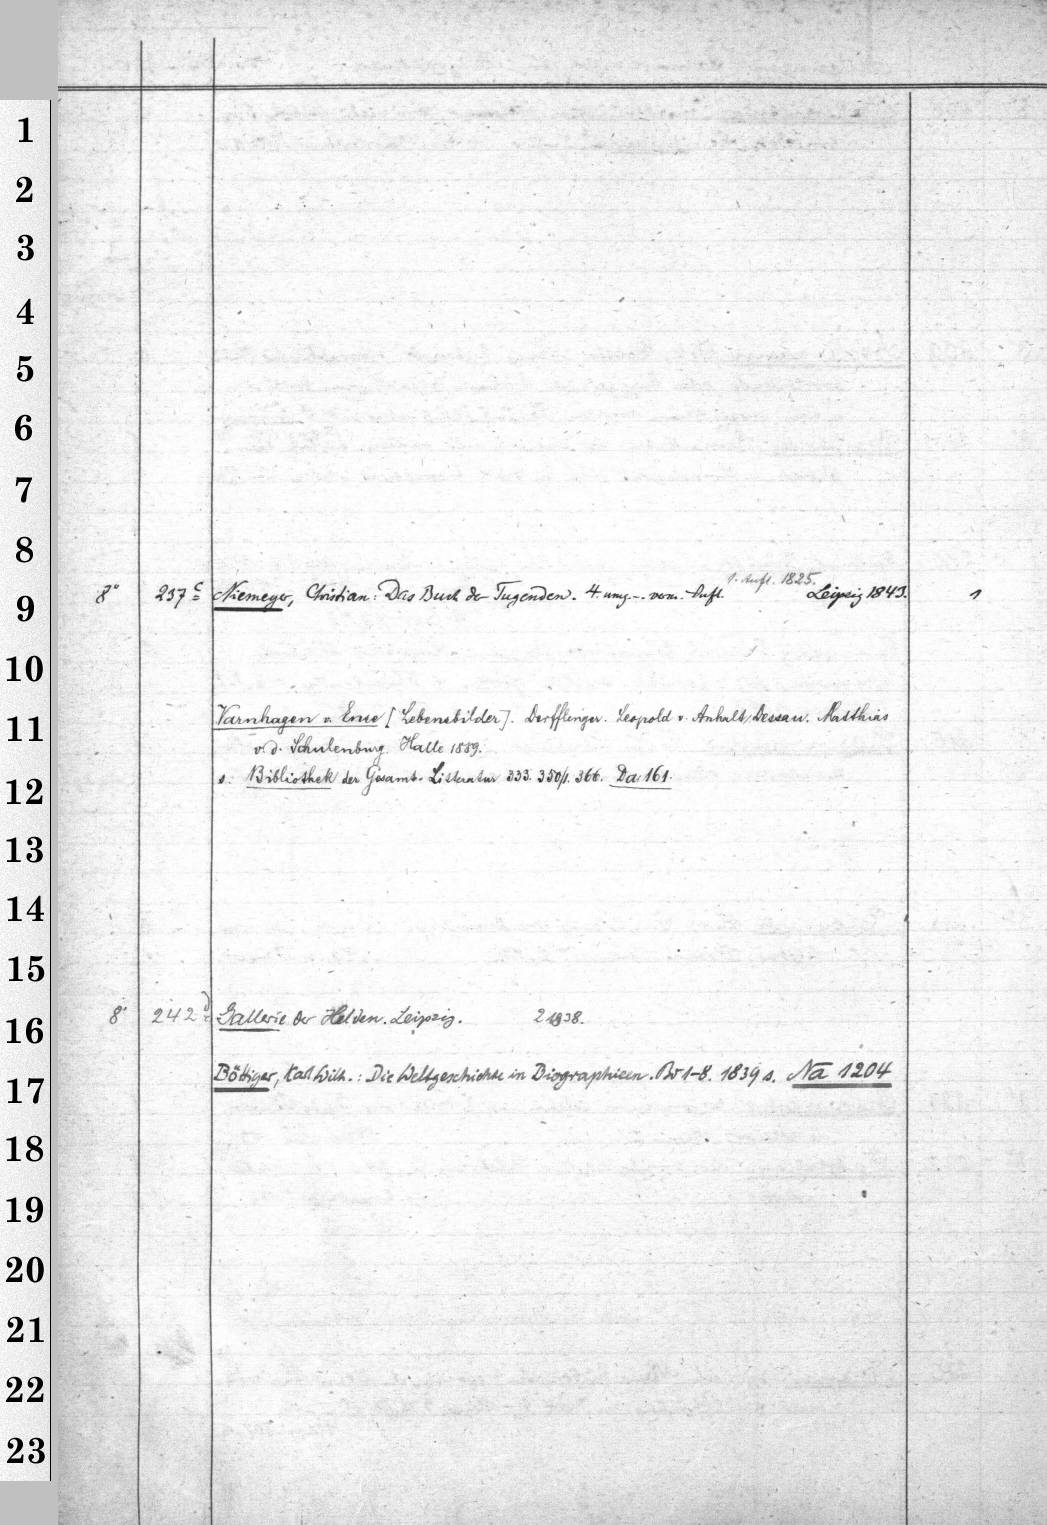 1
2
3
4
5
6
7
8
1. Aufl. 1825.
9 8° 237 c Niemeyer, Christian: Das Buch der Tugenden. 4. umg. verm. Aufl. Leipzig 1843. 1
10
11 Varnhagen v. Ense [Lebensbilder]. Derfflinger. Leopold v. Anhalt Dessau. Matthias
v. d. Schulenburg. Halle 1889.
12 s. Bibliothek der Gesamt-Litteratur 333. 350/1. 366. Da 161.
13
14
15
16 8° 242 d Gallerie der Helden. Leipzig. 2 1938.
17 Böttiger, Karl Wilh.: Die Weltgeschichte in Biographieen. Bd 1-8. 1839 s. Na 1204
18
19
20
21
22
23